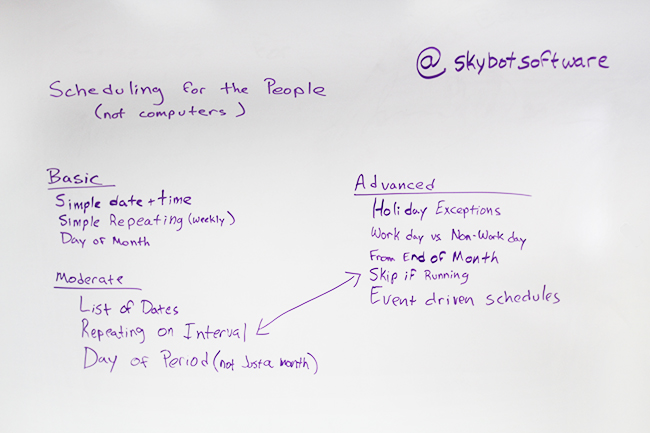 @ skybotsoftware
Scheduling for the People
(not computers)
Basic
Simple date + time
Simple Repeating (weekly)
Day of Month
Moderate
List of Dates
Repeating on Interval
Day of Period (not Just a month)
Advanced
Holiday Exceptions
Work day vs Non-Work day
From End of Month
Skip if Running
Event driven schedules